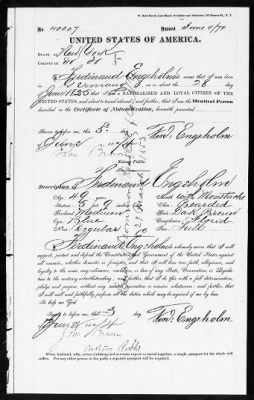 No. 40007
Issued June 6/74
UNITED STATES OF AMERICA.
STATE OF New York
COUNTY OF
I, Ferdinand Engsholm do swear that I was born
in Germany on or about the 26 day
of June 1825 that I am a NATURALIZED AND LOYAL CITIZEN OF THE
UNITED STATES, and about to travel abroad; and further, that I am the Identical Person
described in the Certificate of Naturalization herewith presented
Sworn to before me this 5th
day of June 1874
Ferd. Engsholm
Description of Ferdinand Engsholm
Age: 49
Stature: 5
Forehead: Medium
Eyes: Blue
Nose: Regular
Mouth: with Moustache
Chin: Bearded
Hair: Dark Brown
Complexion: Florid
Face: Full
I, Ferdinand Engsholm do solemnly swear that I will
support, protect and defend the Constitution and Government of the United States against
all enemies, whether domestic or foreign; and that I will bear true faith, allegiance, and
loyalty to the same, any ordinance, resolution, or law of any State, Convention, or Legislature
to the contrary notwithstanding; and further, that I do this with a full determination,
pledge and purpose, without any mental reservation or evasion whatsoever; and further, that
I will well and faithfully perform all the duties which may be required of me by law.
Sworn to before me, this 5
day of June 1874
Ferd. Engsholm
Notary Public
When husband, wife, minor children, and servants expect to travel together, a single passport for the whole
will suffice. For any other person in the party a separate passport will be required.